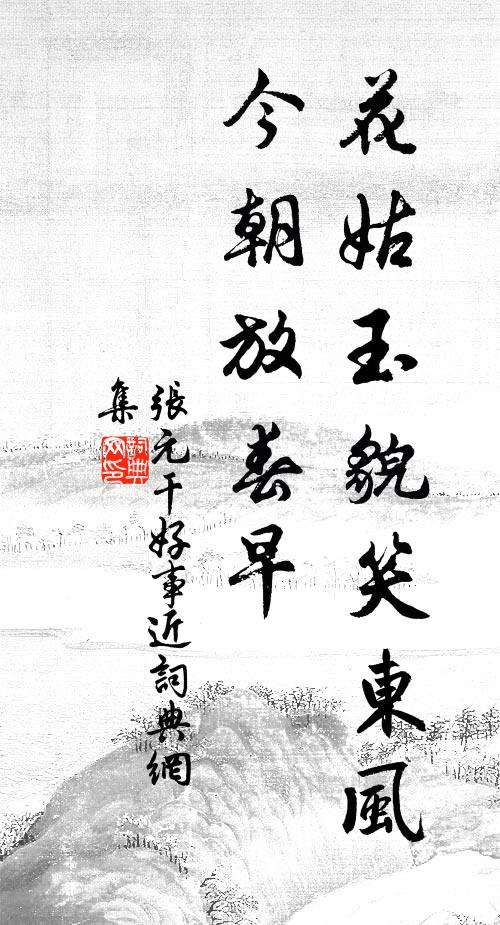 花姑玉貌笑東風
今朝放春早
張元干好事近詞典網
集
詞典网印